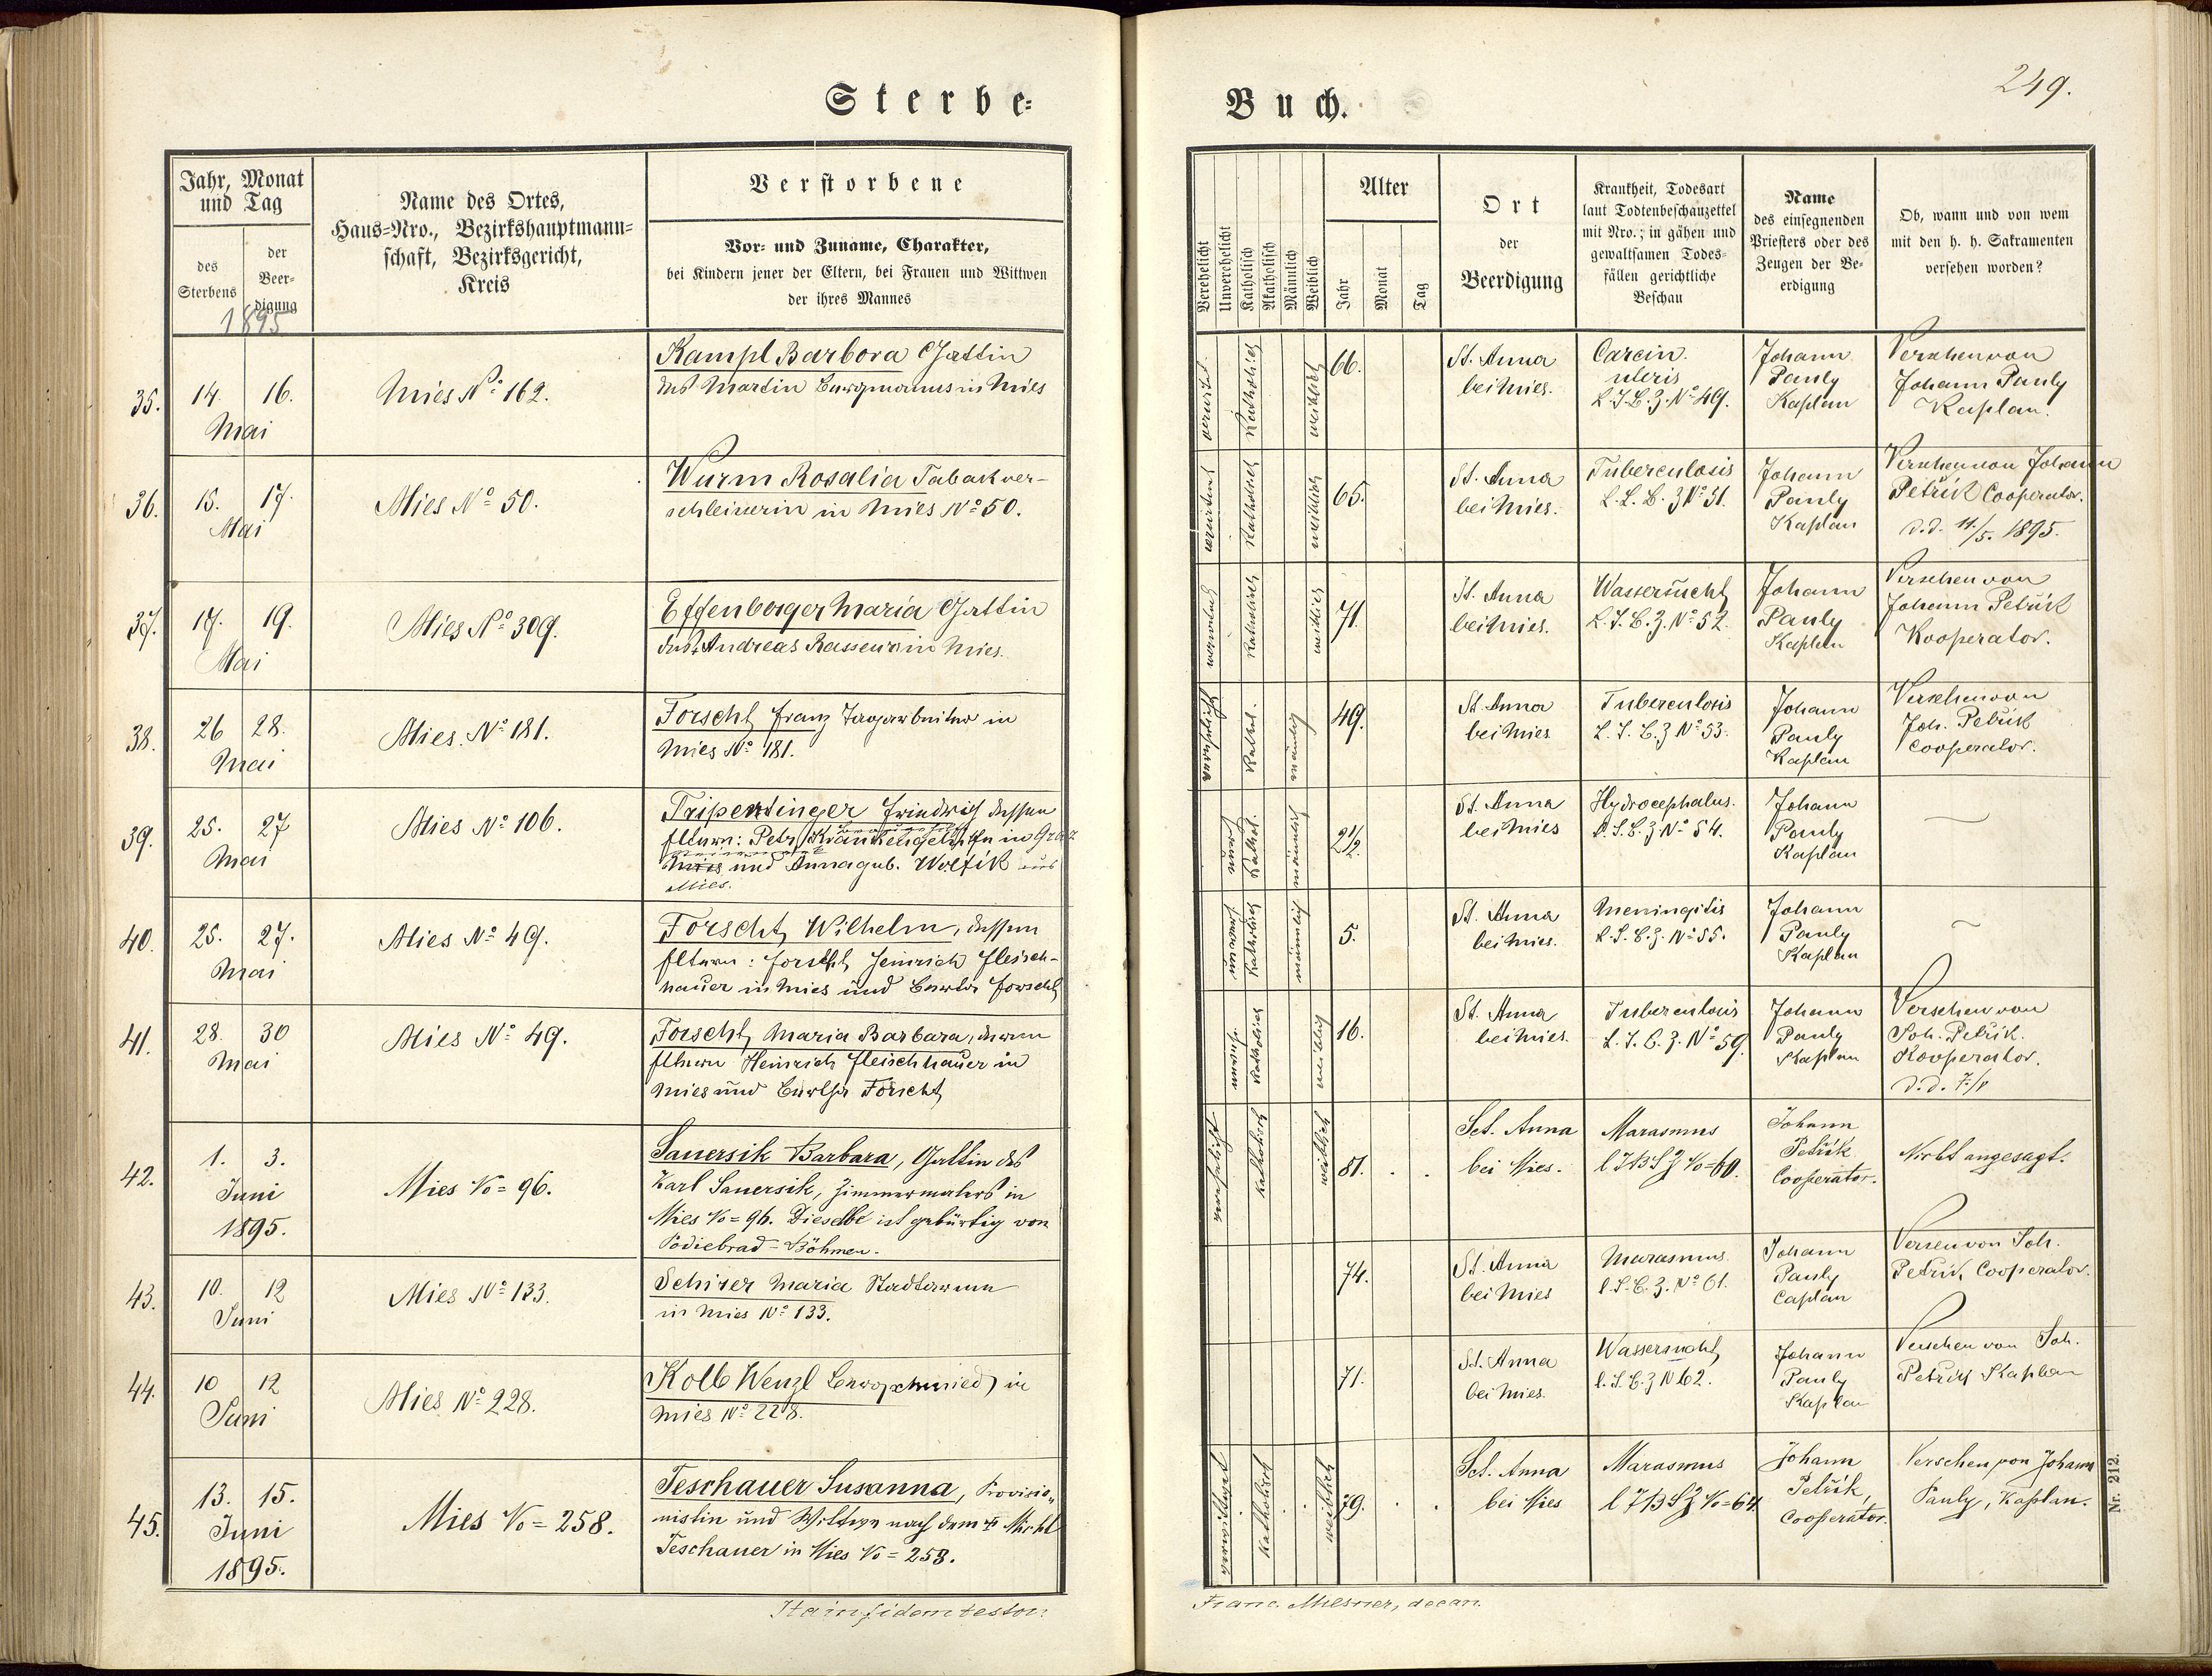 249.
Sterbe-
Buch.
Jahr, Monat
und Tag
des
Sterbens
der
Beer-
digung
1895
Name des Ortes,
Haus-Nro., Bezirkshauptmann-
schaft, Bezirksgericht,
Kreis
Verstorbene
Vor- und Zuname, Charakter,
bei Kindern jener der Eltern, bei Frauen und Wittwen
der ihres Mannes
Verehelicht
Unverehelicht
Katholisch
Akatholisch
Männlich
Weiblich
Alter
Jahr
Monat
Tag
Ort
der
Beerdigung
Krankheit, Todesart
laut Todtenbeschauzettel
mit Nro.; in gähen und
gewaltsamen Todes-
fällen gerichtliche
Beschau
Name
des einsegnenden
Priesters oder des
Zeugen der Be-
erdigung
Ob, wann und von wem
mit den h. h. Sakramenten
versehen worden?
35.
14. 16.
Mai
Mies No 162.
Kampl Barbora Gattin
des Martin Bergmannes in Mies
katholisch
weiblich
66.
St. Anna
bei Mies.
Carcin.
uteris
L.T.B.Z. No 49.
Johann
Pauly
Kaplan
Versehen von
Johann Pauly
Kaplan.
36.
15. 17.
Mai
Mies No 50.
Wurm Rosalia Tabakver-
schleiserin in Mies No 50.
katholisch
weiblich
65.
St. Anna
bei Mies.
Tuberculosis
No 51.
Johann
Pauly
Kaplan
Versehen von Johann
Petřik Cooperator.
d.d. 11/5. 1895.
37.
17. 19.
Mai
Mies No 309.
Effenberger Maria Gattin
des Andreas in Mies.
katholisch
71.
St. Anna
bei Mies.
Wassersucht
L.T.B.Z. No 52.
Johann
Pauly
Kaplan
Versehen von
Johann Petřik
Kooperator.
38.
26 28.
Mai
Mies No 181.
Forscht Franz in
Mies No 181.
Kathol.
49.
St. Anna
bei Mies
Tuberculosis
L.T.B.Z No 53.
Johann
Pauly
Kaplan
Versehen von
Joh. Petřik
Cooperator.
39.
25. 27
Mai
Mies No 106.
Tripentinger Friedrich dessen
Eltern: Petr in
Mies und Anna geb. Wolfik aus
Mies.
Kathol.
männlich
2½
St. Anna
bei Mies
Hydrocephalus.
L.T.B.Z No 54.
Johann
Pauly
Kaplan
40.
25. 27.
Mai
Mies No 49.
Forscht Wilhelm, dessen
Eltern: Forscht Heinrich Fleisch-
hauer in Mies und Forscht
Katholisch
männlich
5.
St. Anna
bei Mies.
Meningitis
L.T.B.Z. No 55.
Johann
Pauly
Kaplan
41.
28. 30
Mai
Mies No 49.
Forscht Maria Barbara, deren
Eltern Heinrich Fleischhauer in
Mies und Forscht
Katholisch
weiblich
16.
St. Anna
bei Mies.
Tuberculosis
L.T.B.Z. No 59
Johann
Pauly
Kaplan
Versehen von
Joh. Petřik.
Kooperator.
42.
1. 3.
Juni
1895.
Mies No= 96.
Sauersik Barbara, Gattin des
Karl Sauersik, Zimmermalers in
Mies No= 96. Dieselbe ist gebürtig von
Podiebrad-Böhmen.
verehelicht
katholisch
weiblich
81.
Sct. Anna
bei Mies.
Marasmus
No= 60.
Johann
Petřik
Cooperator.
Nicht angesagt.
43.
10. 12
Juni
Mies No 133.
Schirer Maria Stadtarme
in Mies No 133.
74.
St. Anna
bei Mies
Marasmus.
No 61.
Johann
Pauly
Caplan
Versen von Joh.
Petřik Cooperator.
44.
10 12
Juni
Mies No 228.
Kolb Wenzl Bergschmied in
Mies No 228.
71.
St. Anna
bei Mies.
Wassersucht
No 62.
Johann
Pauly
Kaplan
Versehen von Joh.
Petřik Kaplan
45.
13. 15.
Juni
1895.
Mies No= 258.
Teschauer Susanna, Provisio-
nistin und Wittwe nach dem
Teschauer in Mies No= 258.
katholisch
weiblich
79.
Sct. Anna
bei Mies
Marasmus
No= 64.
Johann
Petřik,
Cooperator.
Versehen von Johann
Pauly, Kaplan.
Nr. 212.
Ita in fidem testor.
Franc. Miesner, decan.